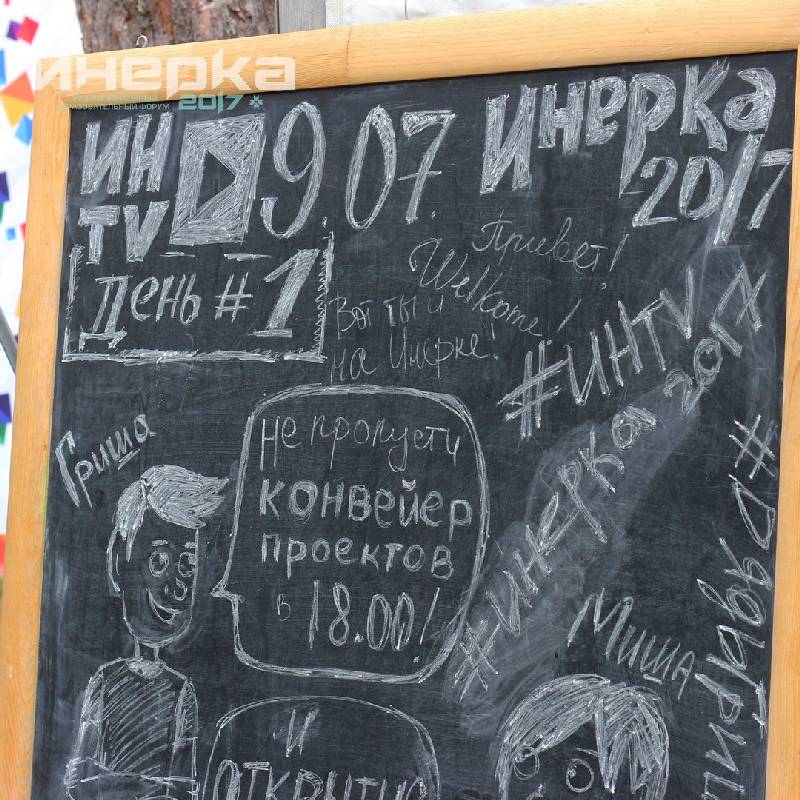 инерка
образовательный форум 2017
ИН
TV
9.07.
Инерка
2017
День #1
Привет!
Welkome!
Вот ты и
на Инерке!
#ИНTV
#инерка 2017
Гриша
Не пропусти
конвейер
проектов
в 18.00!
Миша
И
открытие